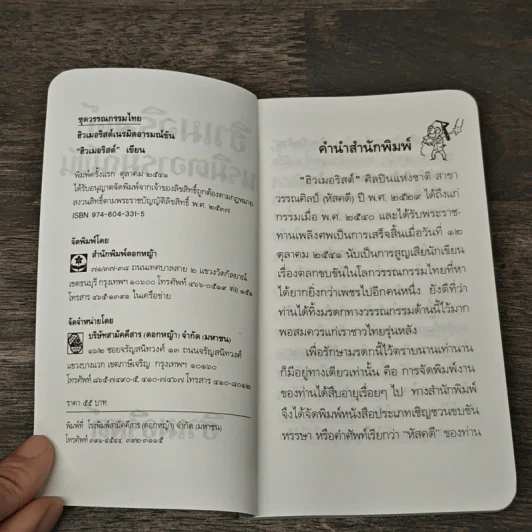 ชุดวรรณกรรมไทย
ฮิวเมอริสต์เนรมิตอารมณ์ขัน
“ฮิวเมอริสต์” เขียน
พิมพ์ครั้งแรก ตุลาคม ๒๕๔๑
ได้รับอนุญาตจัดพิมพ์จากเจ้าของลิขสิทธิ์ถูกต้องตามกฎหมาย
สงวนลิขสิทธิ์ตามพระราชบัญญัติลิขสิทธิ์ พ.ศ. ๒๕๓๗
ISBN 974-604-331-5
จัดพิมพ์โดย
สำนักพิมพ์ดอกหญ้า
๗๑/๓๗-๓๘ ถนนเทศบาลสาย ๒ แขวงวัดกัลยาณ์
เขตธนบุรี กรุงเทพฯ ๑๐๖๐๐ โทรศัพท์ ๔๖๖-๐๕๑๙ ต่อ ๑๕๑
โทรสาร ๔๖๕-๑๓๙๑ ในเครือข่าย
จัดจำหน่ายโดย
บริษัทสามัคคีสาร (ดอกหญ้า) จำกัด (มหาชน)
๑๖๒ ซอยจรัญสนิทวงศ์ ๑๓ ถนนจรัญสนิทวงศ์
แขวงบางแวก เขตภาษีเจริญ กรุงเทพฯ ๑๐๑๖๐
โทรศัพท์ ๘๖๕-๗๔๙๐-๕, ๔๑๐-๗๘๖๗ โทรสาร ๔๑๐-๘๐๑๒
ราคา ๕๕ บาท
พิมพ์ที่ โรงพิมพ์สามัคคีสาร (ดอกหญ้า) จำกัด (มหาชน)
โทรศัพท์
คำนำสำนักพิมพ์
“ฮิวเมอริสต์” ศิลปินแห่งชาติ สาขา
วรรณศิลป์ (หัสคดี) ปี พ.ศ. ๒๕๒๙ ได้ถึงแก่
กรรมเมื่อ พ.ศ. ๒๕๔๐ และได้รับพระราช-
ทานเพลิงศพเป็นการเสร็จสิ้นเมื่อวันที่ ๑๒
ตุลาคม ๒๕๔๑ นับเป็นการสูญเสียนักเขียน
เรื่องตลกขบขันในโลกวรรณกรรมไทยที่หา
ได้ยากยิ่งกว่าเพชรไปอีกคนหนึ่ง ยังดีที่ว่า
ท่านได้ทิ้งมรดกทางวรรณกรรมด้านนี้ไว้มาก
พอสมควรแก่เราชาวไทยรุ่นหลัง
เพื่อรักษามรดกนี้ไว้ตราบนานเท่านาน
ก็มีอยู่ทางเดียวเท่านั้น คือ การจัดพิมพ์งาน
ของท่านได้สืบอายุเรื่อยๆ ไป ทางสำนักพิมพ์
จึงได้จัดพิมพ์หนังสือประเภทเชิญชวนขบขัน
หรรษา หรือคำศัพท์เรียกว่า “หัสคดี” ของท่าน